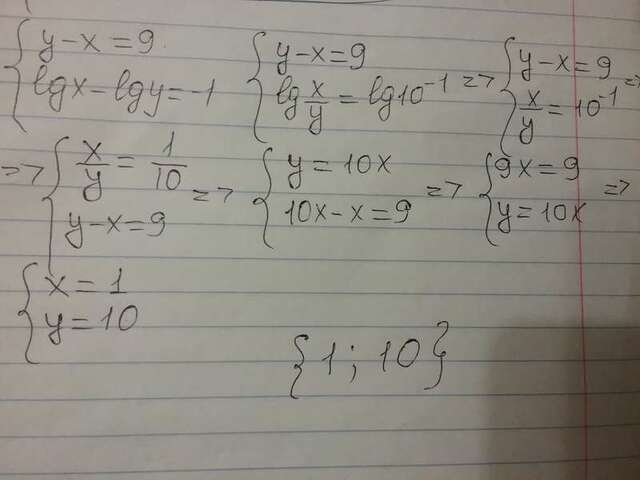 { y-x=9
lgx-lgy=-1
{ y-x=9
lg x/y = lg10⁻¹ =>
{ y-x=9
x/y = 10⁻¹ =>
=> { x/y = 1/10
y-x=9 =>
{ y=10x
10x-x=9 =>
{ 9x=9
y=10x =>
{ x=1
y=10
{1; 10}